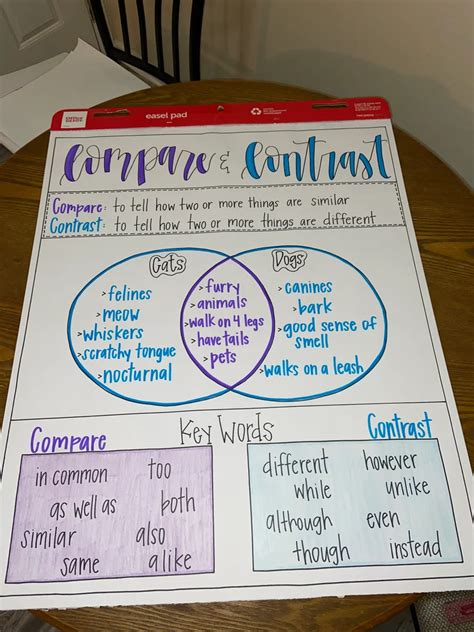 easel pad
Compare & Contrast
Compare: to tell how two or more things are similar
Contrast: to tell how two or more things are different
Cats
>felines
>meow
>whiskers
>scratchy tongue
>nocturnal
>furry
>animals
>walk on 4 legs
>have tails
>pets
Dogs
>canines
>bark
>good sense of
smell
>walks on a leash
Key Words
Compare
in common too
as well as both
similar also
same alike
Contrast
different however
while unlike
although even
though instead